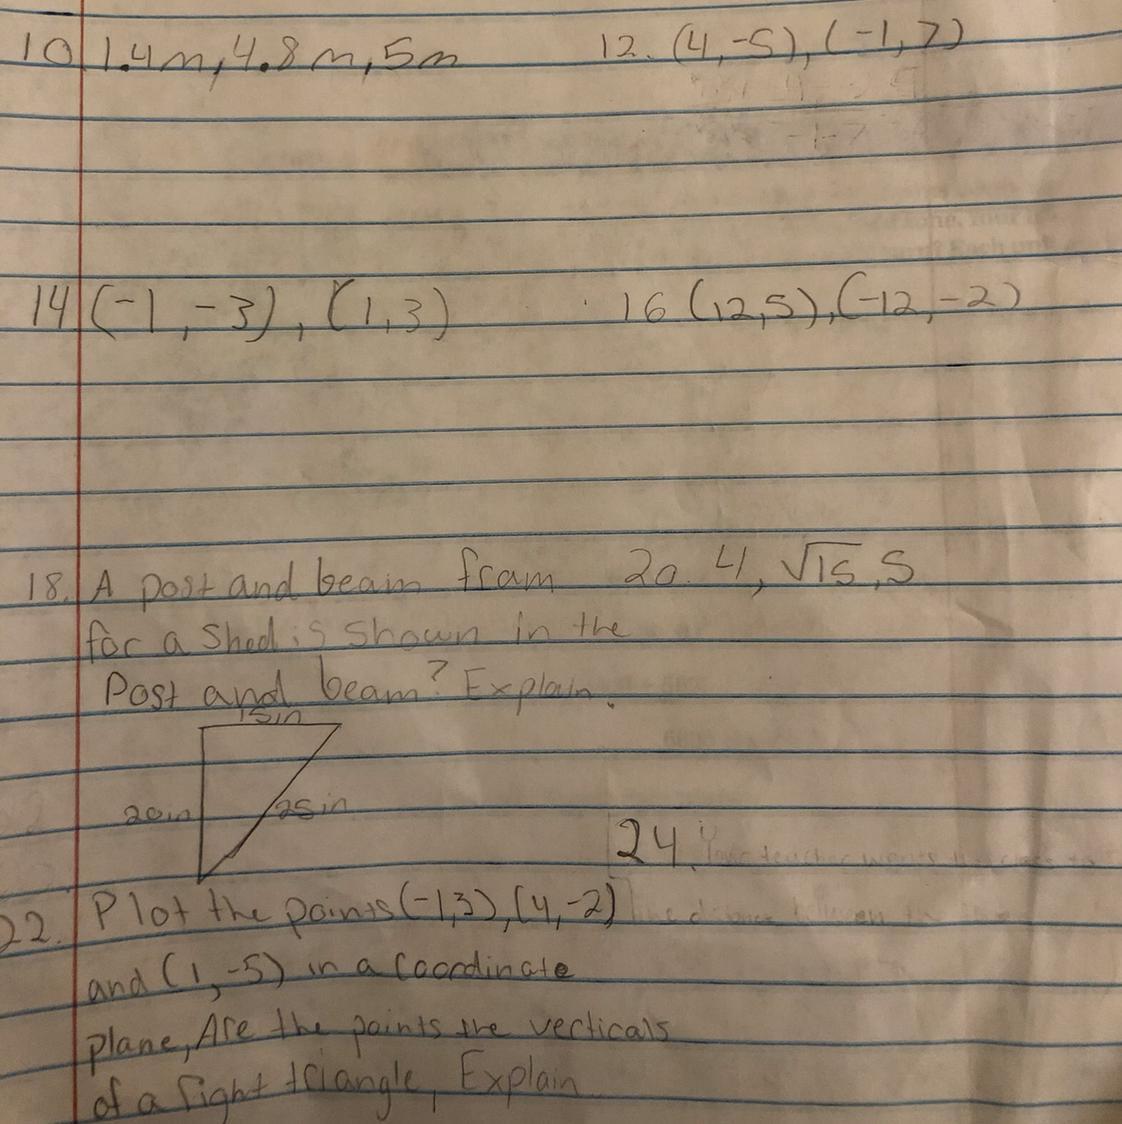 10 1.4m, 4.8m, 5m
12. (4,-5), (-1,7)
14 (-1,-3), (1,3)
16 (12,5), (-12,-2)
18. A post and beam fram
for a Shed is Shown in the
Post and beam? Explain.
15in
20in
25in
20. 4, √15, 5
24.
22. Plot the points (-1,3), (4,-2)
and (1,-5) in a Coordinate
plane, Are the points the verticals
of a right triangle, Explain